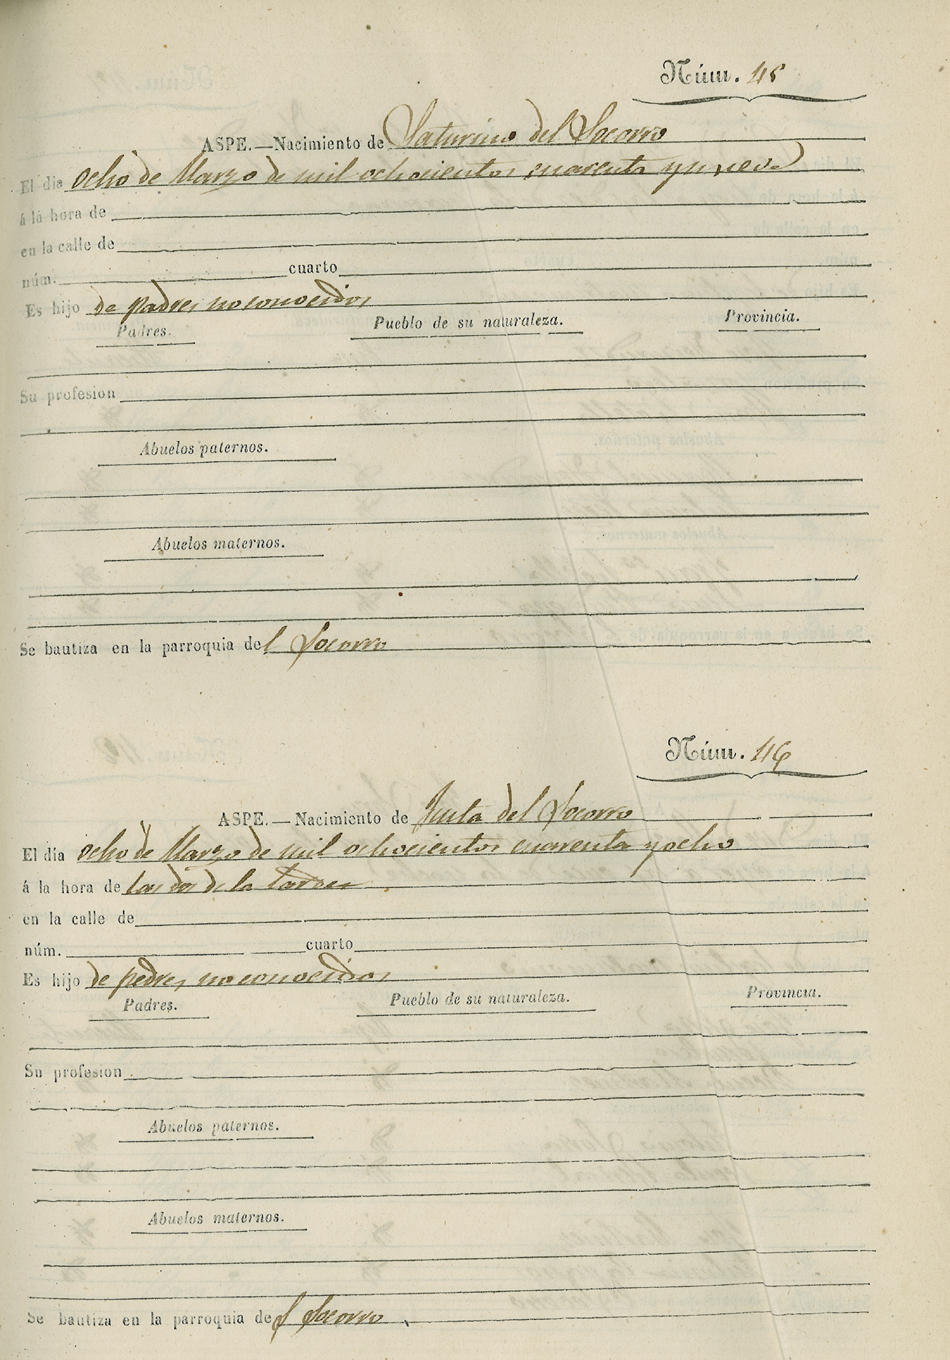 Núm. 45
ASPE.—Nacimiento de Saturnino del Socorro
El dia ocho de Marzo de mil ochocientos cuarenta y nueve
á la hora de
en la calle de
núm. cuarto
Es hijo de padres no conocidos
Padres. Pueblo de su naturaleza. Provincia.
Su profesion
Abuelos paternos.
Abuelos maternos.
Se bautiza en la parroquia del Socorro
Núm. 46
ASPE.—Nacimiento de Justa del Socorro
El día ocho de Marzo de mil ochocientos cuarenta y ocho
á la hora de las dos de la tarde
en la calle de
núm. cuarto
Es hijo de padres no conocidos
Padres. Pueblo de su naturaleza. Provincia.
Su profesion
Abuelos paternos.
Abuelos maternos.
Se bautiza en la parroquia del Socorro